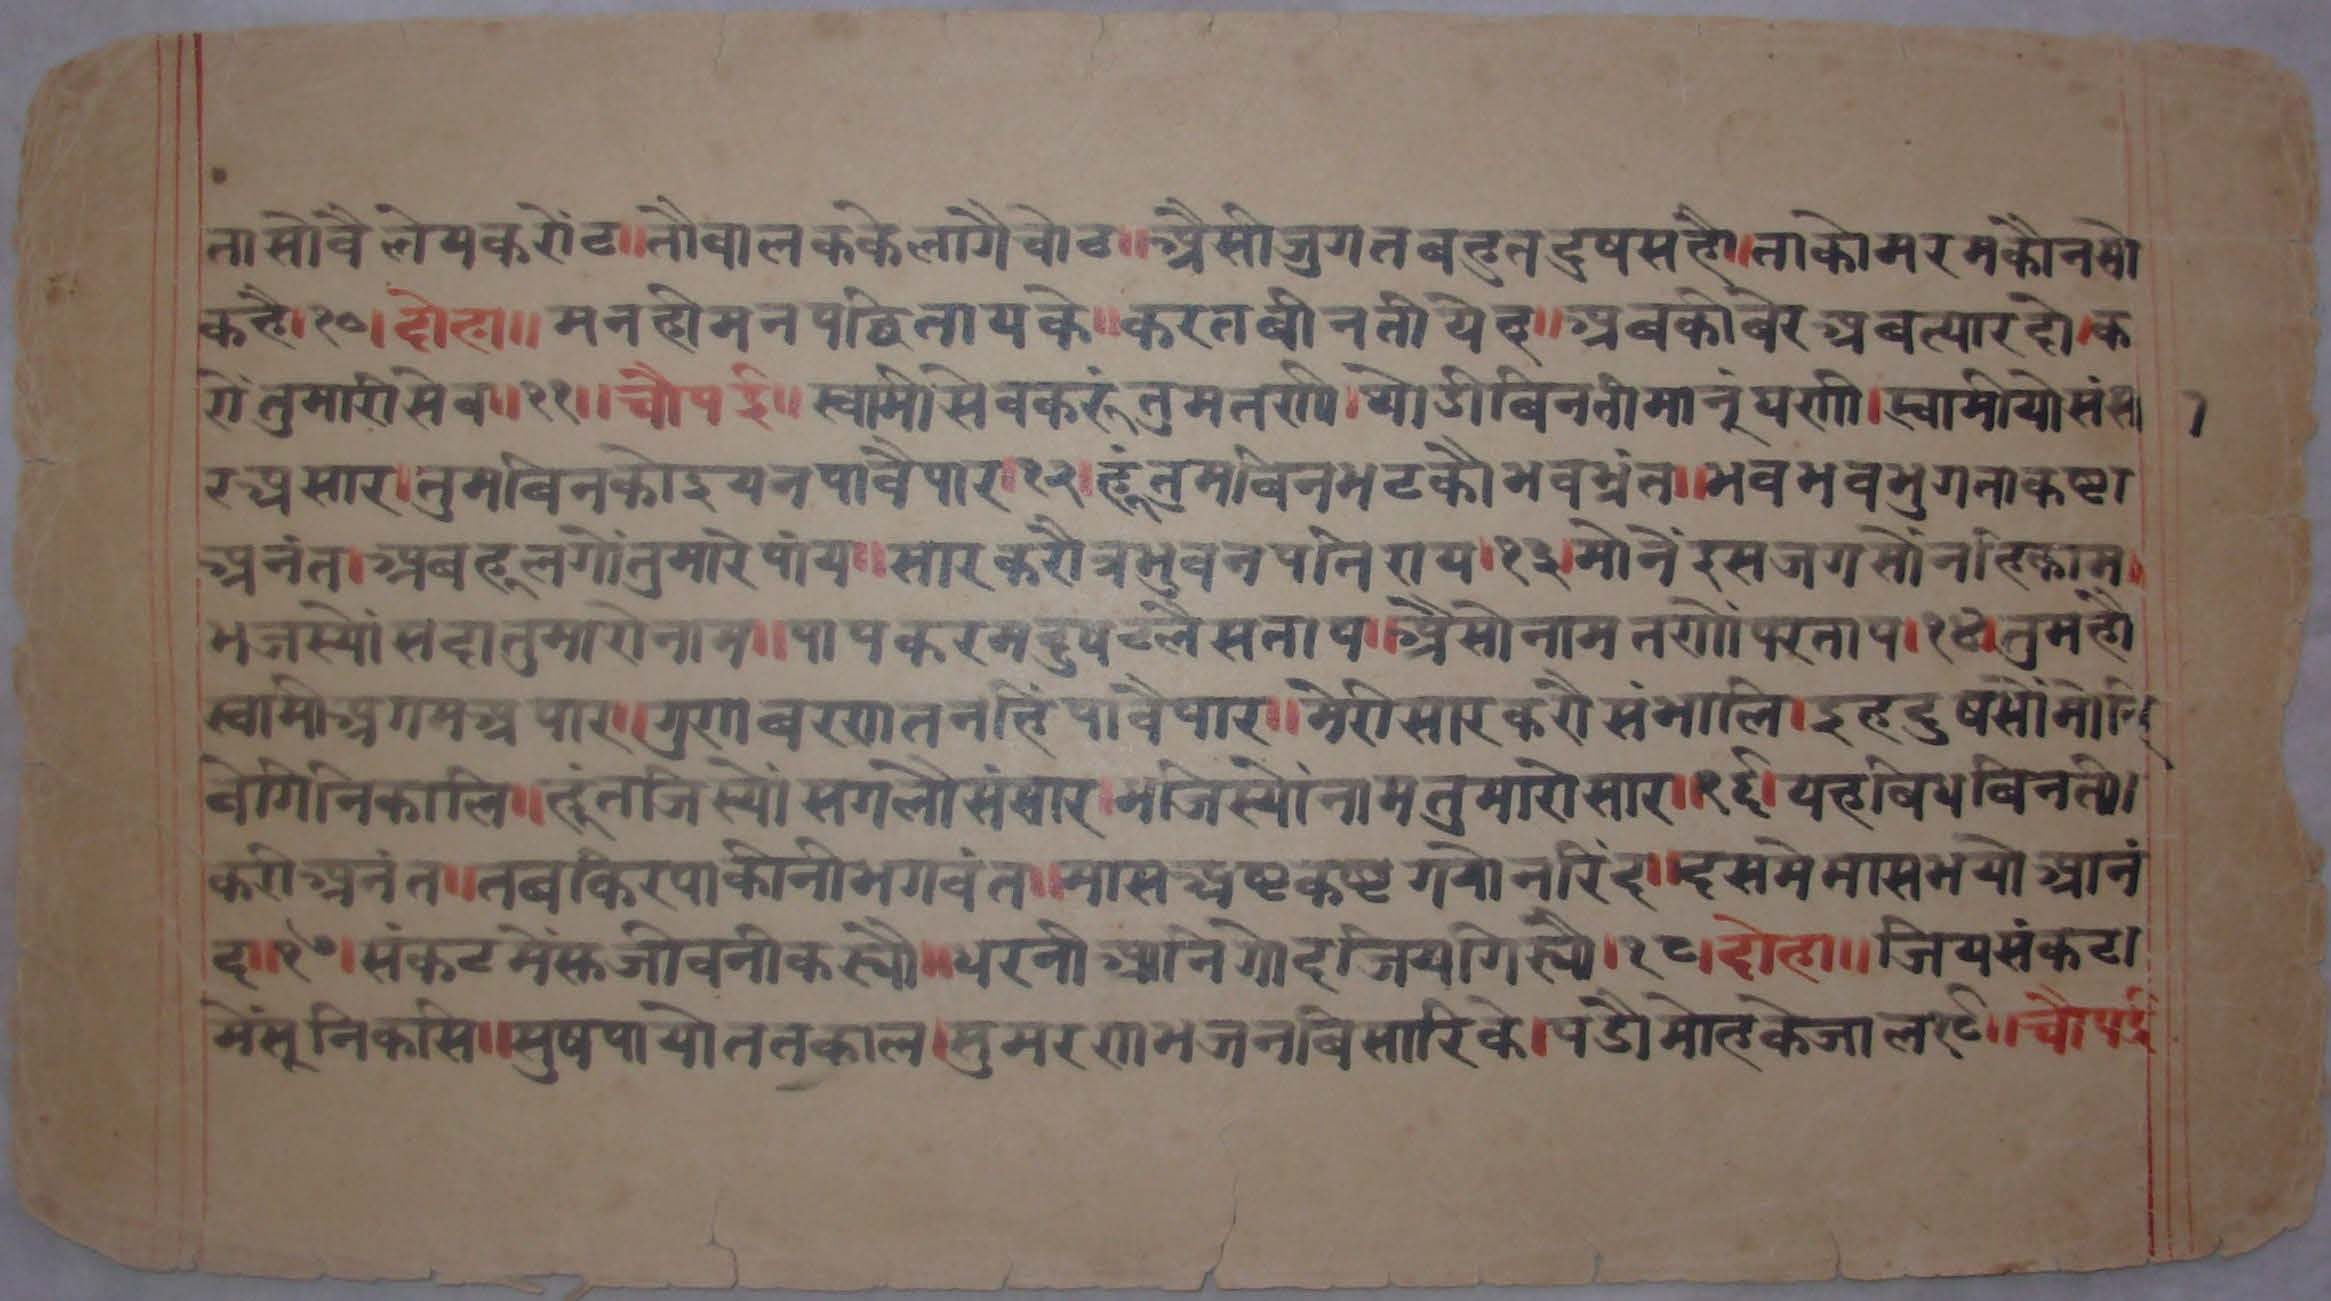 तासोंवै लेयकरोंट॥तौवालककेलागैचोट॥ऐसीजुगतबहुतदुषसहै॥ताकोमरमकौनसो
कहै।१०।दोहा॥मनहीमनपछितायके॥करतबीनतीयेह॥अबकीबेरअबत्यारदो।क
रोंतुमारीसेव॥११॥चौपई॥स्वामीसेवकरूंतुमतणी।योडीबिनतीमानूंघणी।स्वामीयोसंसा
रअसार।तुमबिनकोइयनपावैपार।१२।हूंतुमबिनभटकौभवभ्रंत॥भवभवभुगताकष्टा
अनंत।अबहूलगोंतुमारेपांय॥सारकरौत्रभुवनपतिराय।१३।मोनेंइसजगसोंनहिकाम॥
भजस्योंसदातुमारोनाम॥पापकरमदुषटलैसताप॥ऐसोनामतणोंपरताप।१४।तुमहौ
स्वामीअगमअपार॥गुणबरणतनहिंपावैपार॥मेरीसारकरौसंभालि।इहदुषसौंमोहि
बेगिनिकालि॥हूंतजिस्योंसगलौसंसार।भजिस्योंनामतुमारोसार॥१६।यहबिधबिनती।
करीअनंत॥तबकिरपाकीनीभगवंत॥मासअष्टकष्टगयोनरिंद॥दसमेमासभयोआनं
द॥१७।संकटमेंस्रजीवनीकस्यौ॥धरनीआनिगोदजियगिस्यौ।१८।दोहा॥जियसंकट।
मेंसूनिकसि॥सुषपायोततकाल।सुमरणभजनबिसारिके।पडौमोहकेजाल१९॥चौपई